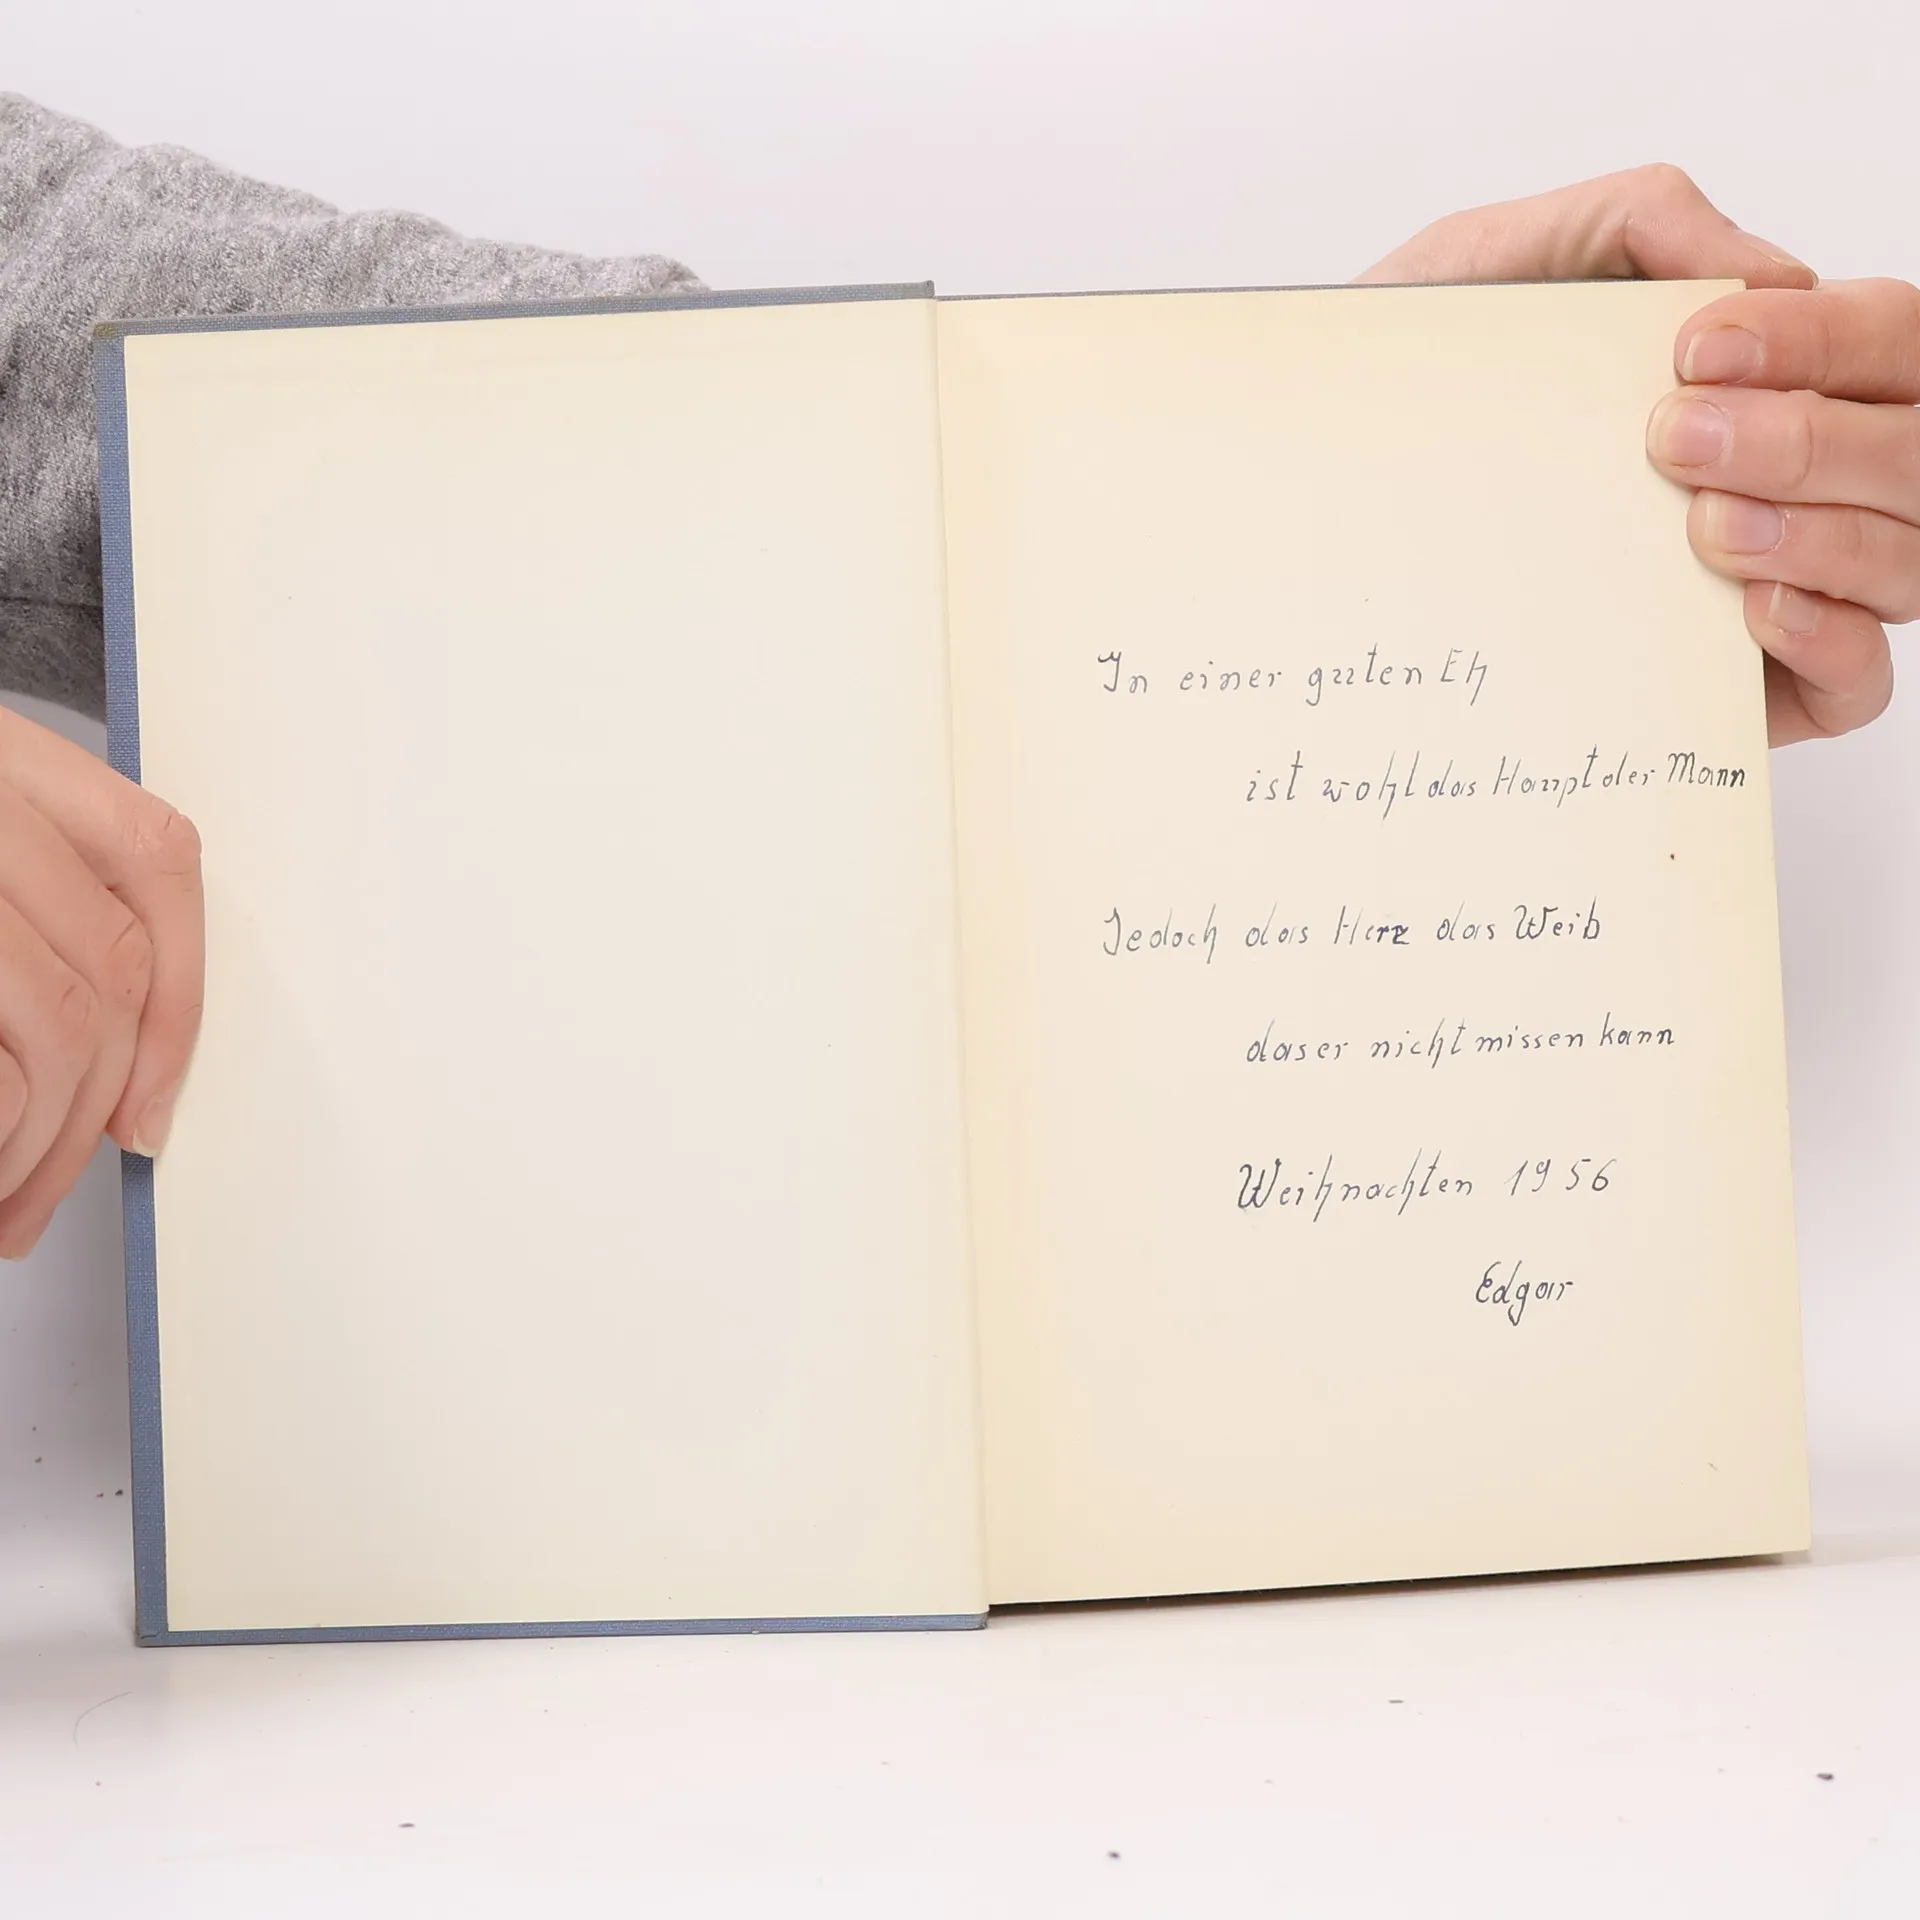 In einer guten Eh
ist wohl das Haupt der Mann
Jedoch das Herz das Weib
das er nicht missen kann
Weihnachten 1956
Edgar